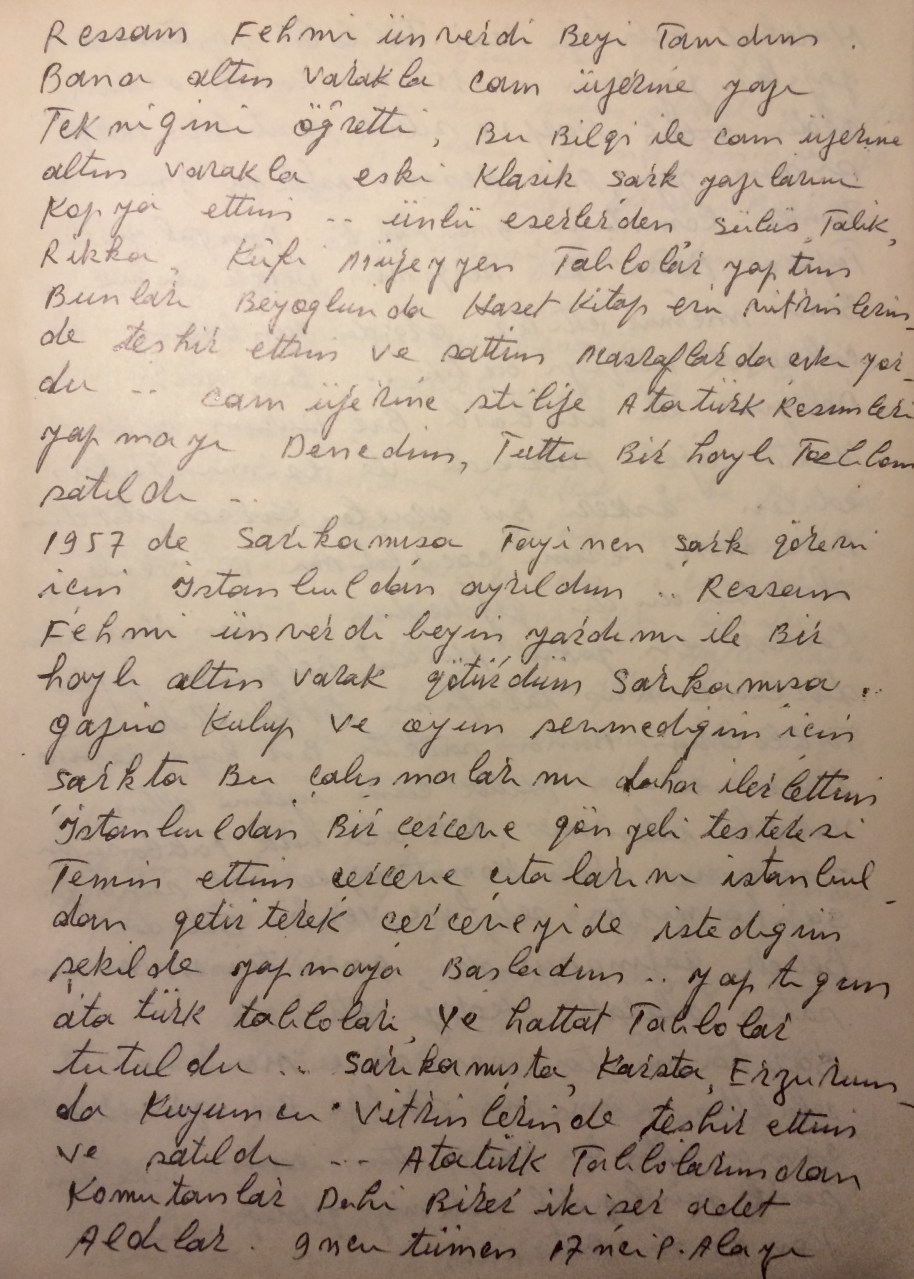 Ressam Fehmi ünverdi Beyi Tanıdım.
Bana altın varakla cam üzerine yazı
Tekniğini öğretti, Bu Bilgi ile cam üzerine
altın varakla eski Klasik şark yazılarını
Kopya ettim .. ünlü eserlerden sülüs, Talik,
Rikka, Kûfi Müzeyyen Tablolar yaptım
Bunları Beyoğlunda Haset Kitap evi vitrinlerin-
de teşhir ettim ve sattım Masraflarda çıkıyor-
du ... cam üzerine stilize Atatürk Resimleri
yapmayı Denedim, Tuttu Bir hayli Tablom
satıldı ..
1957 de Sarıkamışa Tayinen şark görevi
için İstanbuldan ayrıldım .. Ressam
Fehmi ünverdi beyin yardımı ile Bir
hayli altın varak götürdüm Sarıkamışa ..
gazino Kulup ve oyun sevmediğim için
şarkta Bu çalışmalarımı daha ilerlettim
İstanbuldan Bir çerçeve gönyeli testeresi
Temin ettim çerçeve çıtalarını istanbul-
dan getirterek çerçeveyide istediğim
şekilde yapmaya Başladım .. yaptığım
ata türk tabloları, ve hattat Tablolar
tutuldu .. Sarıkamışta, Karsta, Erzurum-
da Kuyumcu Vitrinlerinde teşhir ettim
ve satıldı ... Atatürk Tablolarımdan
Komutanlar Dahi Birer ikişer adet
Aldılar. 9ncu tümen 17nci P. Alayı